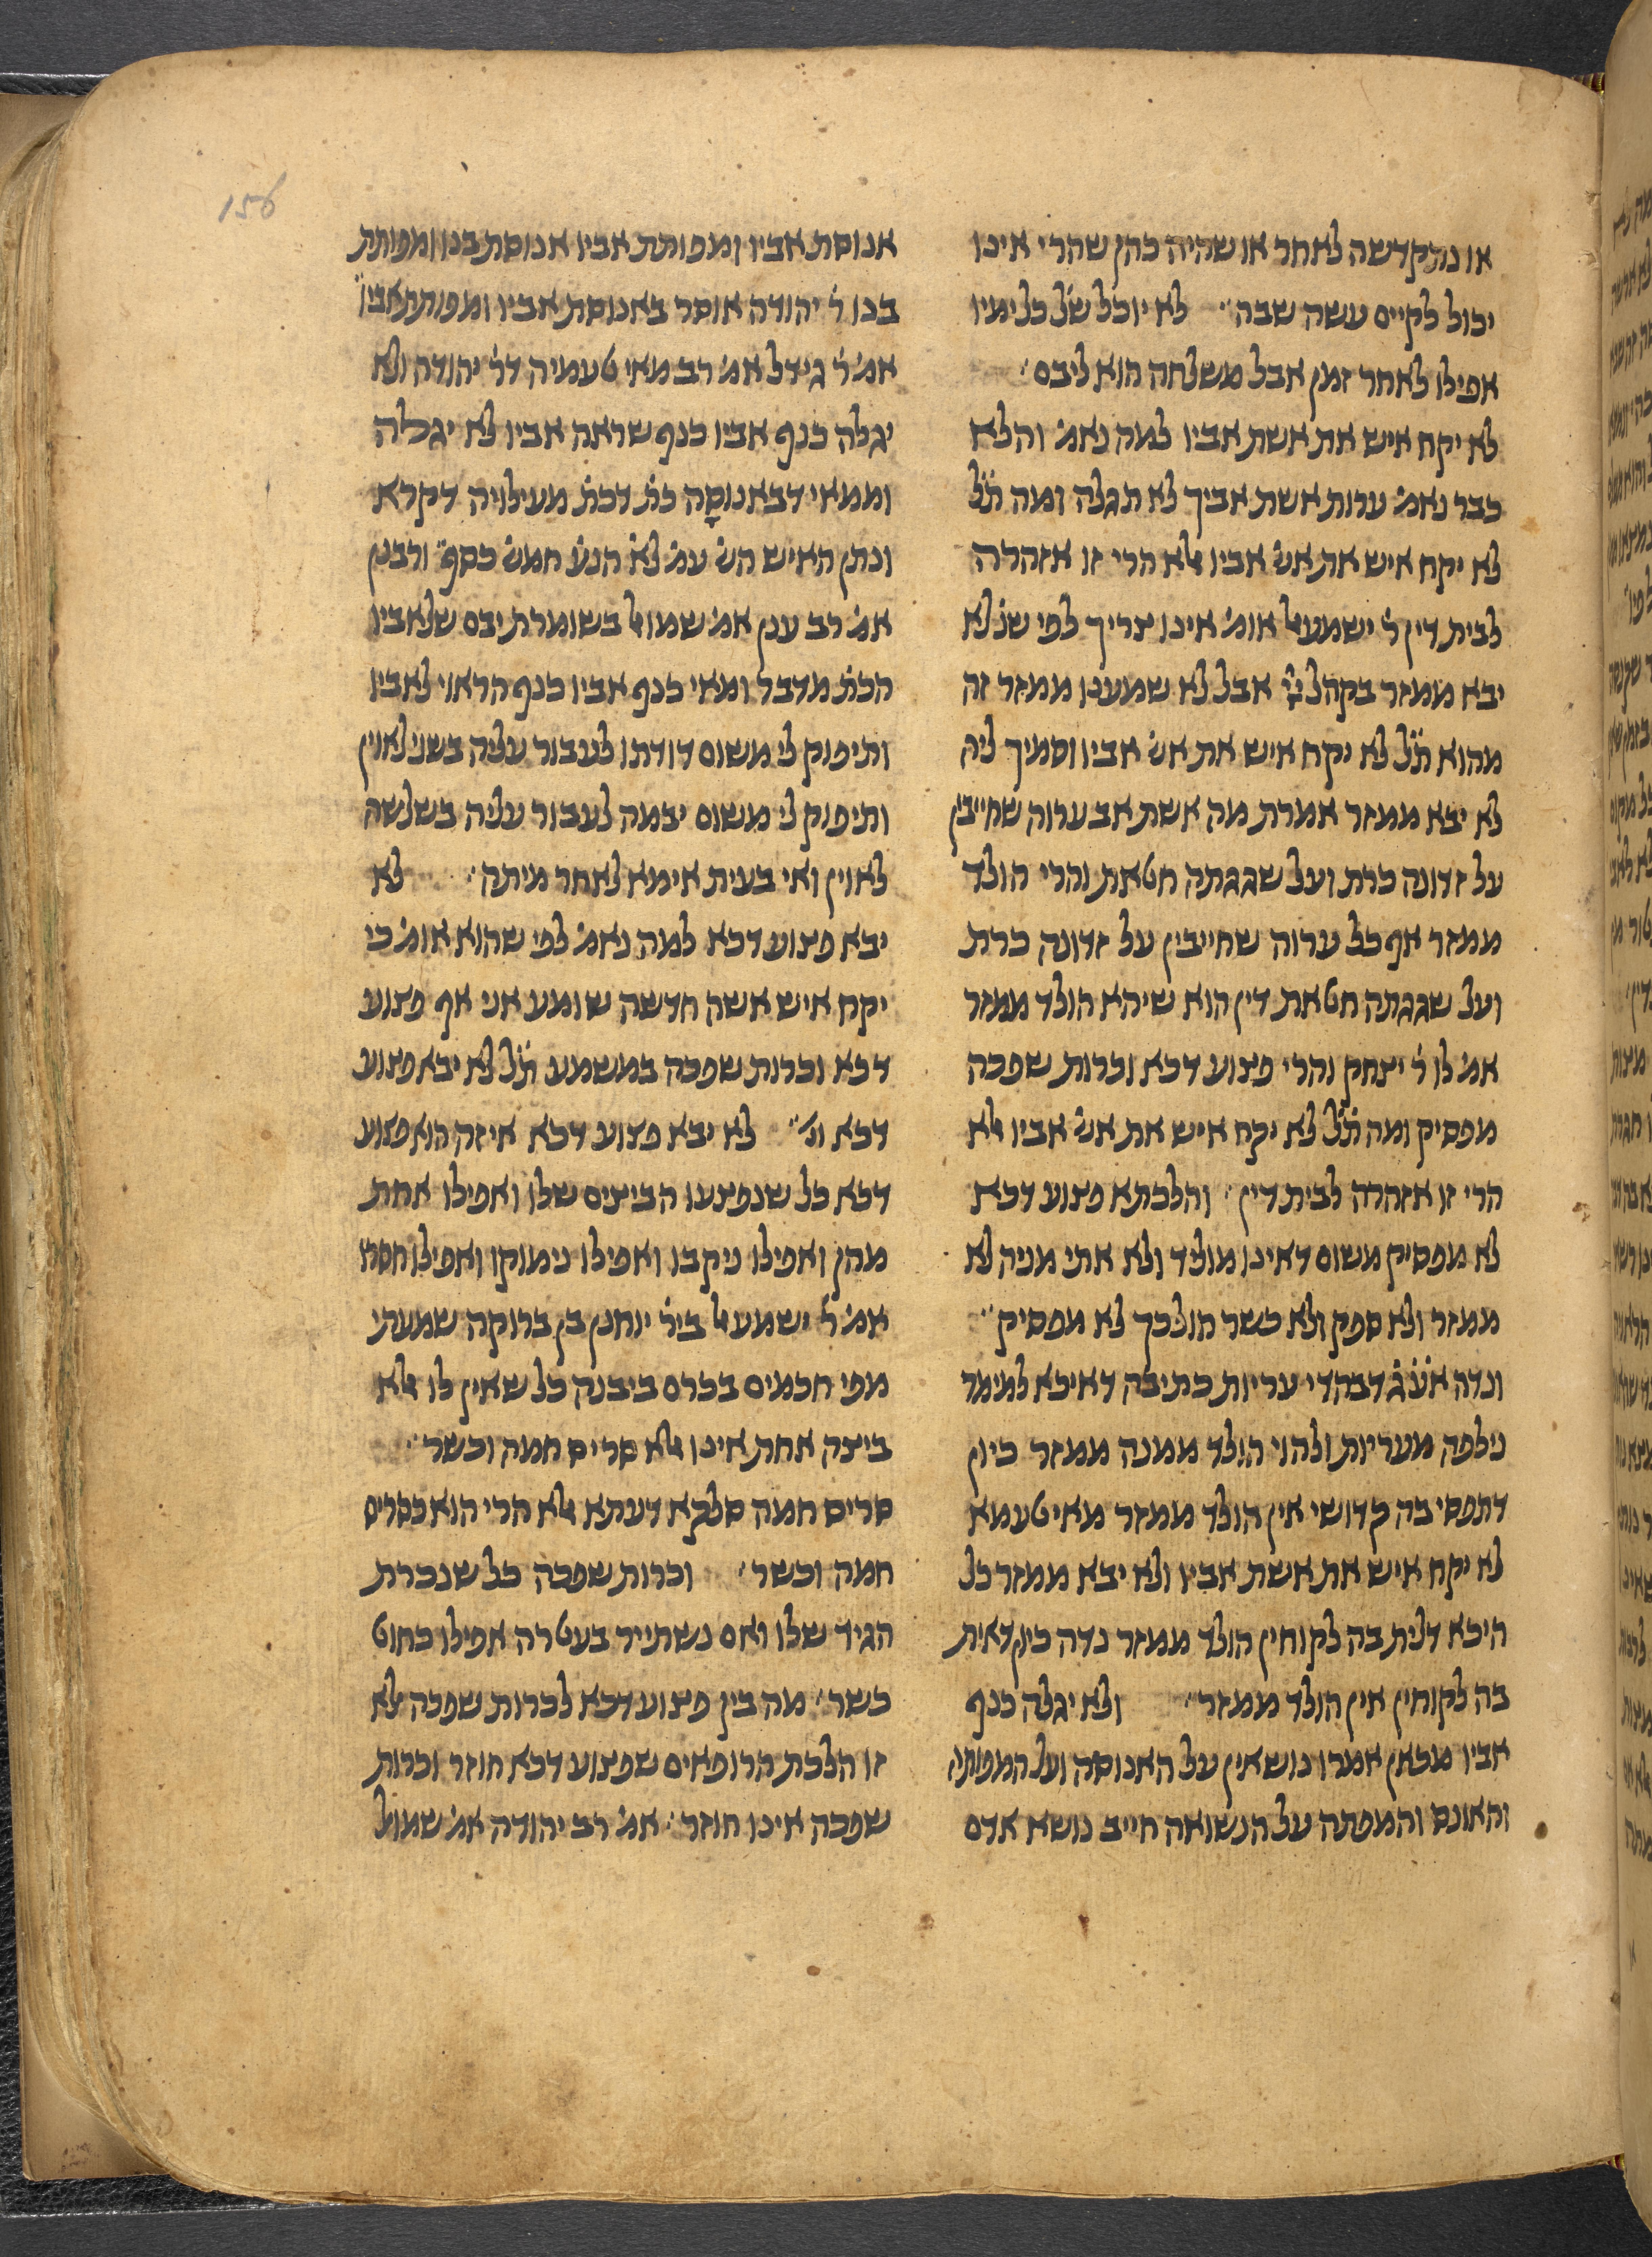 156
או נתקדשה לאחר או שהיה כהן שהרי אינו
יכול לקיים עשה שבה׃ לא יוכל של כל ימיו
אפילו לאחר זמן אבל משלחה הוא ליבם׃
לא יקח איש את אשת אביו למה נאמ׳ והלא
כבר נאמ׳ ערות אשת אביך לא תגלה ומה ת״ל
לא יקח איש את אש׳ אביו אלא הרי זו אזהרה
לבית דין ר׳ ישמעאל אומ׳ אינו צריך לפי שנ׳ לא
יבא ממזר בקהל יי׳ אבל לא שמענו ממזר זה
מהוא ת״ל לא יקח איש את אש׳ אביו וסמיך ליה
לא יבא ממזר אמרת מה אשת אב ערוה שחייבין
על זדונה כרת ועל שגגתה חטאת והרי הולד
ממזר אף כל ערוה שחייבין על זדונה כרת
ועל שגגתה חטאת דין הוא שיהא הולד ממזר
אמ׳ לו ר׳ יצחק והרי פצוע דכא וכרות שפכה
מפסיק ומה ת״ל לא יקח איש את אש׳ אביו אלא
הרי זו אזהרה לבית דין׃ והלכתא פצוע דכא
לא מפסיק משום דאינו מוליד ולא אתי מניה לא
ממזר ולא ספק ולא כשר הולכך לא מפסיק׃
ונדה אע״ג דבהדי עריות כתיבה דאיכא למימר
נילפה מעריות ולהוי הולד ממנה ממזר כיון
דתפסי בה קדושי אין הולד ממזר מאי טעמא
לא יקח איש את אשת אביו ולא יבא ממזר כל
היכא דלית בה לקוחין הולד ממזר נדה כיון דאית
בה לקוחין אין הולד ממזר׃ ולא יגלה כנף
אביו מכאן אמרו נושאין על האנוסה ועל המפותה
והאונס והמפתה על הנשואה חייב נושא אדם
אנוסת אביו ומפותת אביו אנוסת בנו ומפותת
בנו ר׳ יהודה אוסר באנוסת אביו ומפותת אביו׃
אמ׳ ר׳ גידל אמ׳ רב מאי טעמיה דר׳ יהודה ולא
יגלה כנף אביו כנף שראה אביו לא יגלה
וממאי דבאנוסה כת׳ דכת׳ מעילויה דקרא
ונתן האיש הש׳ עמ׳ לא׳ הנע׳ חמש׳ כסף׃ ורבנן
אמ׳ רב ענן אמ׳ שמואל בשומרת יבם שלאביו
הכת׳ מדבר ומאי כנף אביו כנף הראוי לאביו
ותיפוק לי משום דודתו לעבור עליה בשני לאוין
ותיפוק לי משום יבמה לעבור עליה בשלשה
לאוין ואי בעית אימא לאחר מיתה׃ לא
יבא פצוע דכא למה נאמ׳ לפי שהוא אומ׳ כי
יקח איש אשה חדשה שומע אני אף פצוע
דכא וכרות שפכה במשמע ת״ל לא יבא פצוע
דכא וג׳׃ לא יבא פצוע דכא איזה הוא פצוע
דכא כל שנפצעו הביצים שלו ואפילו אחת
מהן ואפילו ניקבו ואפילו נימוקו ואפילו חסרו
אמ׳ ר׳ ישמעאל ביר׳ יוחנן בן ברוקה שמעתי
מפי חכמים בכרם ביבנה כל שאין לו אלא
ביצה אחת אינו אלא סריס חמה וכשר׃
סריס חמה סלקא דעתא אלא הרי הוא כסריס
חמה וכשר׃ וכרות שפכה כל שנכרת
הגיד שלו ואם נשתייר בעטרה אפילו כחוט
כשר׃ מה בין פצוע דכא לכרות שפכה אלא
זו הלכת הרופאים שפצוע דכא חוזר וכרות
שפכה אינו חוזר׃ אמ׳ רב יהודה אמ׳ שמואל